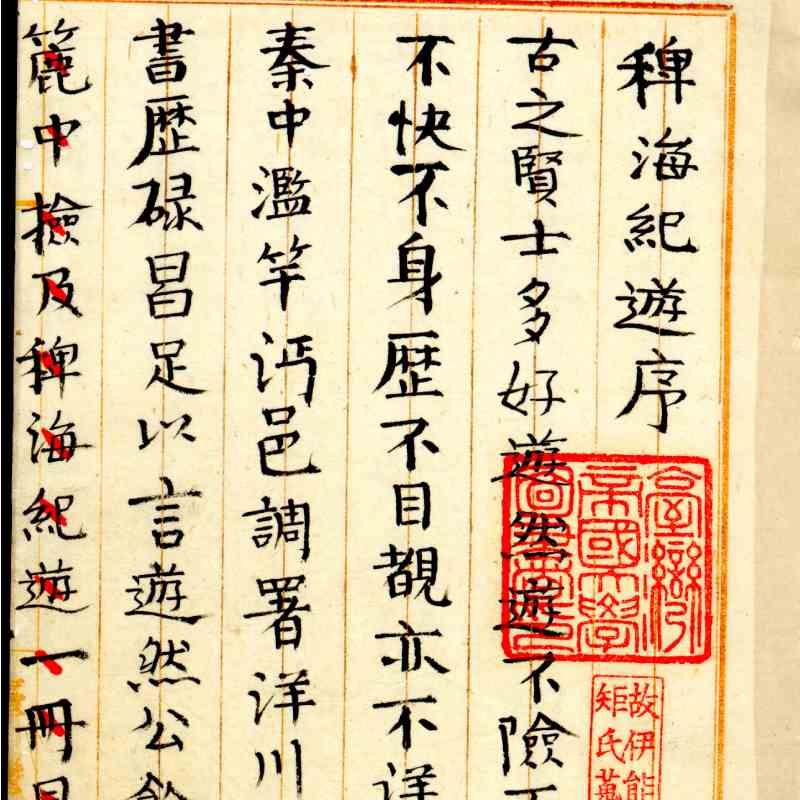 稗海紀遊序
古之賢士多好遊然遊不險不
不快不身歴不目覩亦不詳
秦中濫竽沔邑調署洋川
書歴碌昌足以言遊然公餘
簏中撿及稗海紀遊一冊
臺灣
帝國大學
圖書印
故伊能
矩氏蒐